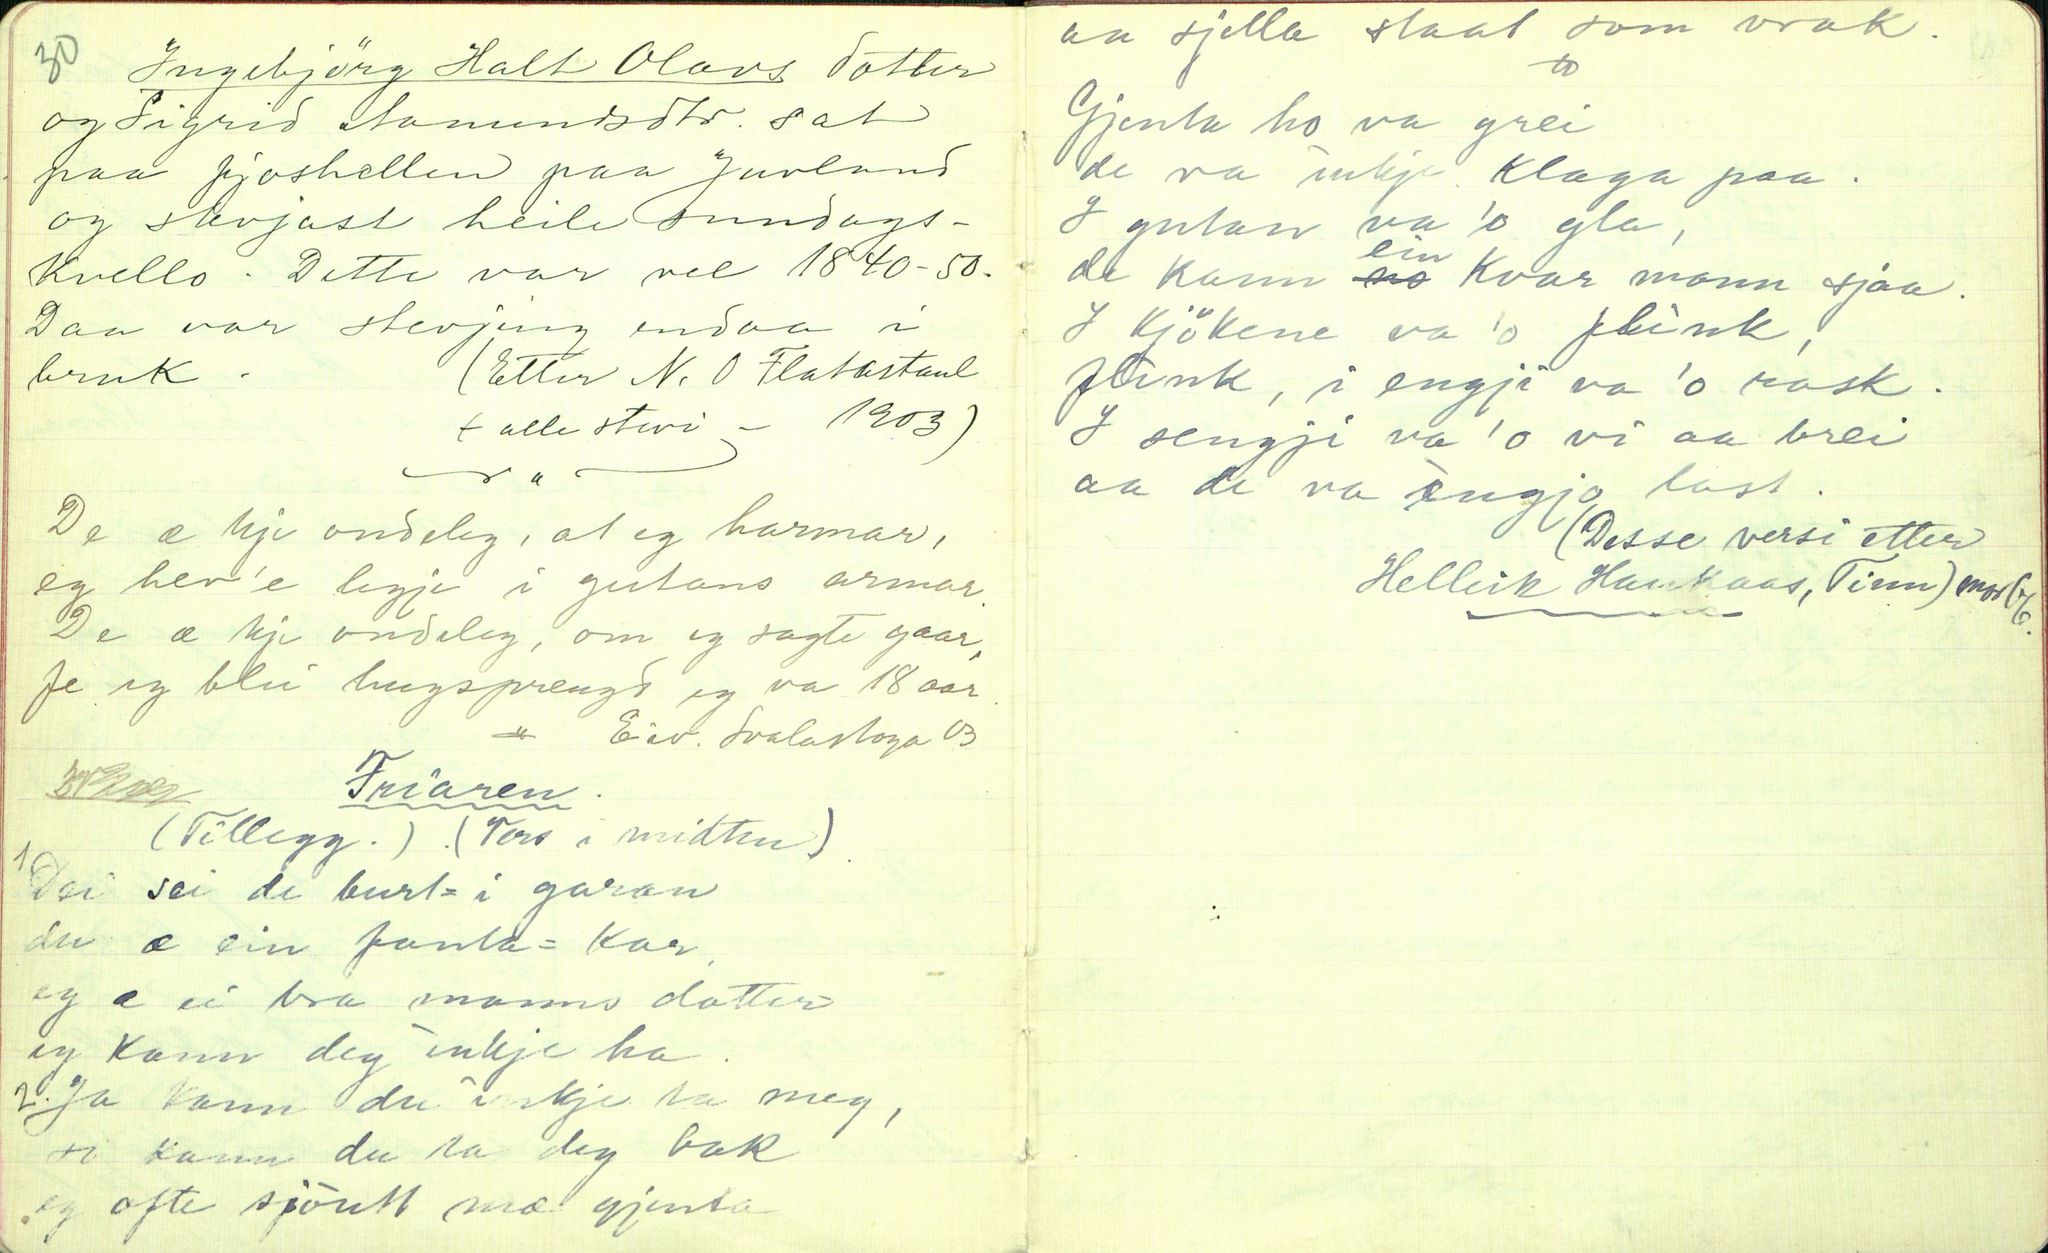 30
Ingebjörg Halt Olavs dotter
og Sigrid Aamundsdtr. sat
paa fjoshellen paa Juvland
og stevjast heile sundags-
kvello. Dette var vel 1840-50.
Daa var stevjing endaa i
bruk. (Etter N. O Flatastaul
+ alle stevi - 1903)
"
De æ kje ondeleg, at eg harmar,
eg hev'e legje i gutans armar.
De æ kje ondeleg, om eg sagte gaar,
fe eg blei hugsprengd eg va 18 aar.
" Eiv. Svalastoga 03
Friaren.
(Tillegg.) (Vers i midten)
1 Dei sei de burt= i garan
du æ ein fanta= kar,
eg æ ei bra manns dotter
eg kann deg inkje ha.
2. Ja kann du inkje ta meg,
so kann du ta deg bak
eg ofte sjöult mæ gjenta
aa sjella staat som vrak.
"
Gjenta ho va grei
de va inkje klaga paa.
I gutan va 'o gla,
ein
de kann no kvar mann sjaa.
I kjökene va 'o flink,
flink, i engji va 'o rask.
I sengji va 'o vi aa brei
aa de va ingjo last.
(Desse versi etter
Helleik Haukaas, Tinn)